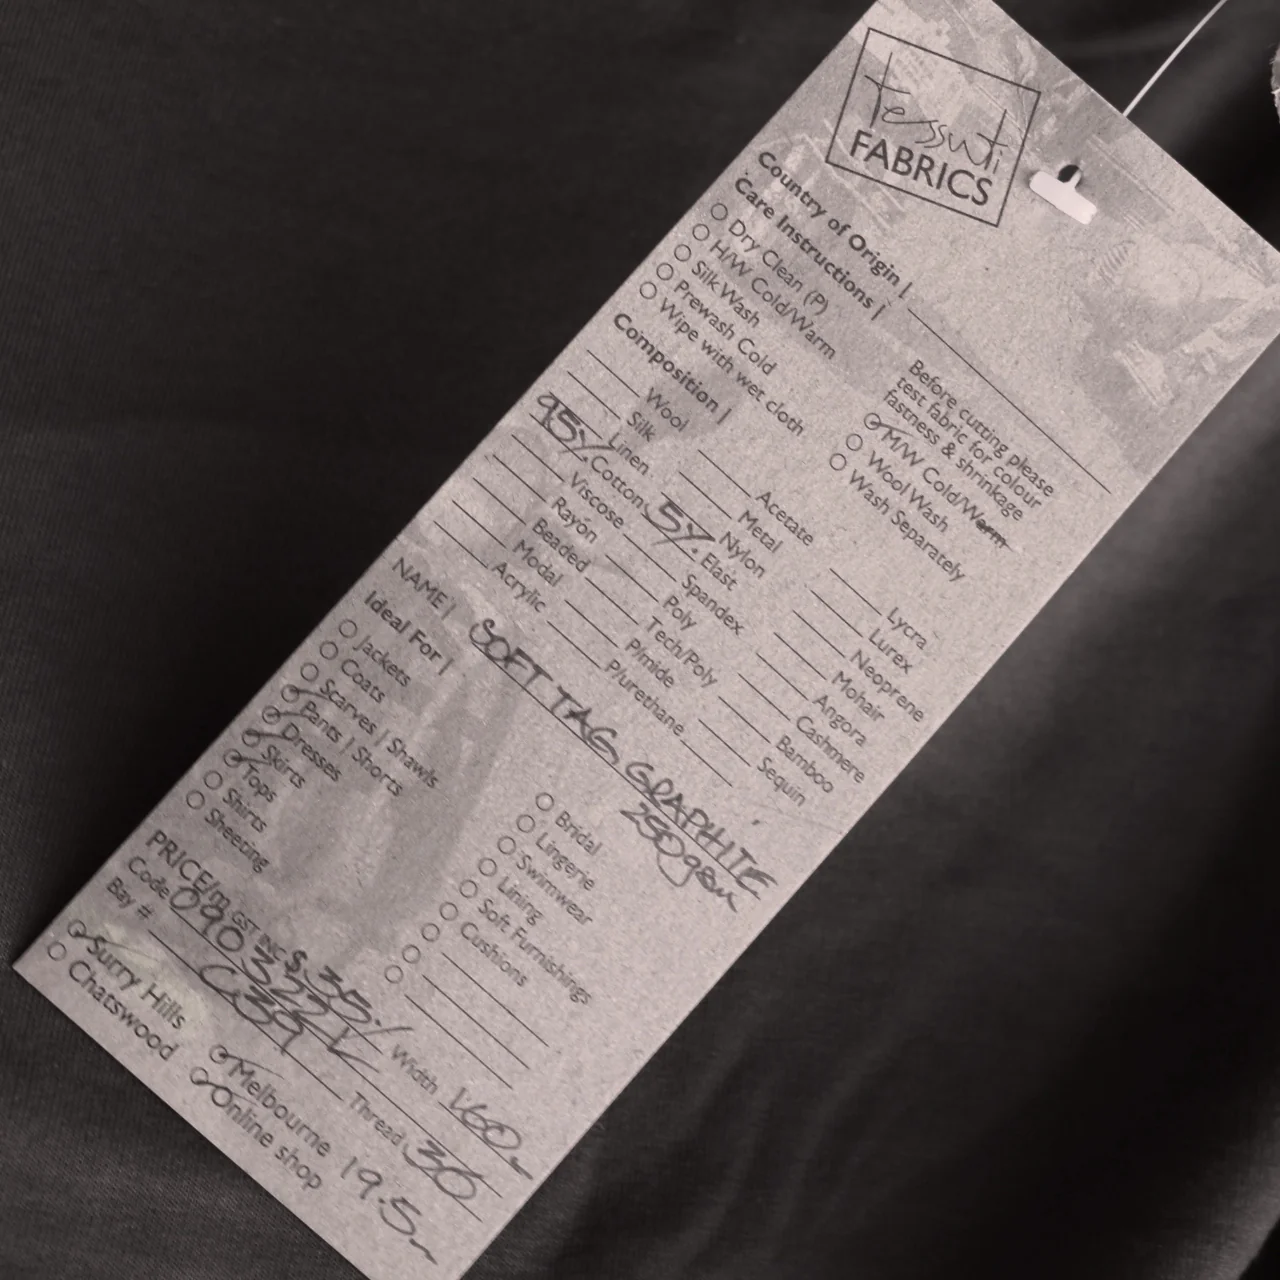 tessuti
FABRICS
Country of Origin |
Care Instructions |
Dry Clean (P)
H/W Cold/Warm
Silk Wash
Prewash Cold
Wipe with wet cloth
Before cutting please
test fabric for colour
fastness & shrinkage
M/W Cold/Warm
Wool Wash
Wash Separately
Composition |
Wool
Silk
Linen
95% Cotton
Viscose
Rayón
Beaded
Modal
Acrylic
Acetate
Metal
Nylon
5% Elast
Spandex
Poly
Tech/Poly
P/mide
P/urethane
Lycra
Lurex
Neoprene
Mohair
Angora
Cashmere
Bamboo
Sequin
NAME | SOFT TAG, GRAPHITE
250gsm
Ideal For |
Jackets
Coats
Scarves | Shawls
Pants | Shorts
Dresses
Skirts
Tops
Shirts
Sheeting
Bridal
Lingerie
Swimwear
Lining
Soft Furnishings
Cushions
PRICE/m GST INC $35
Code 090322
Width 1.60
Bay # C39
Thread 36
Surry Hills
Chatswood
Melbourne
Online shop
19.5